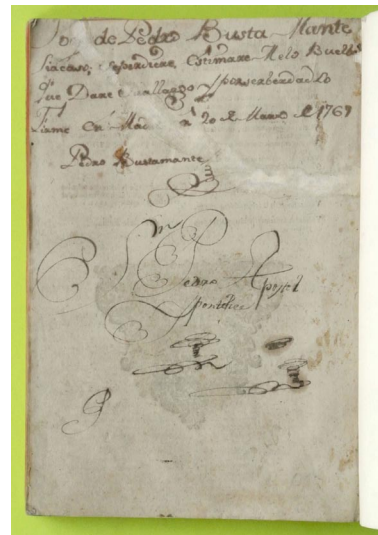 Soy de Pedro Busta Mante
si acaso se perdiere Estimare Melo Buelba
que Dare el allazgo y por ser berdad lo
firme en Mad n 20 de Marzo de 1769
Pedro Bustamante
S P
Pedro Apostol
Pontifice